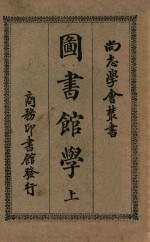 尚志學會叢書
圖書館學 上
商務印書館發行